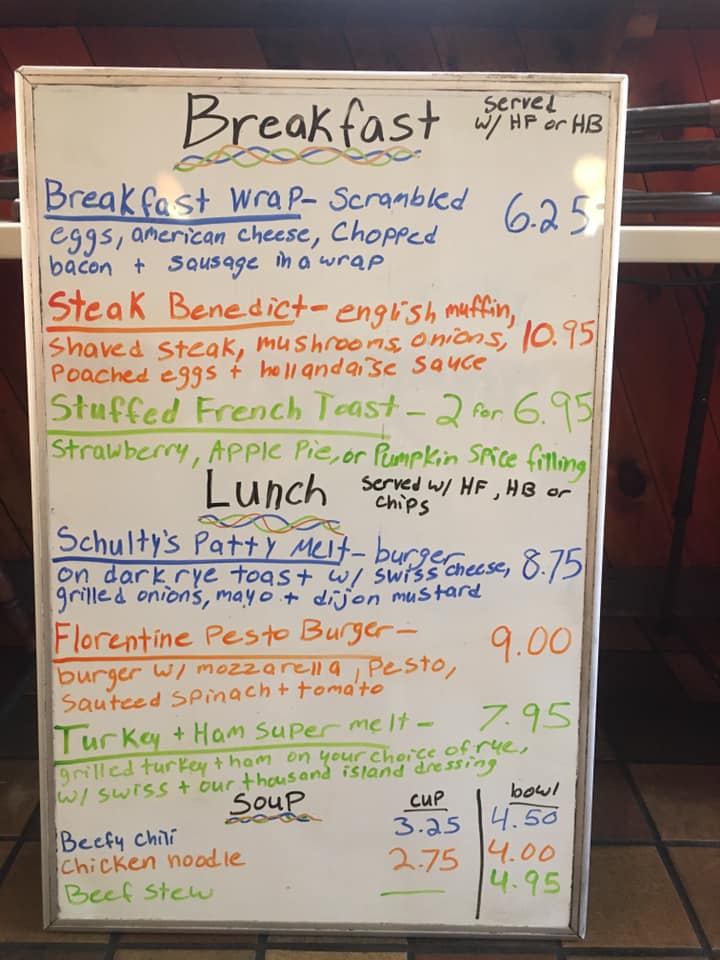 Breakfast served
w/ HF or HB
Breakfast Wrap- Scrambled 6.25
eggs, american cheese, Chopped
bacon + sausage in a wrap
Steak Benedict- english muffin,
shaved steak, mushrooms, onions, 10.95
Poached eggs + hollandaise sauce
Stuffed French Toast - 2 for 6.95
Strawberry, Apple Pie, or Pumpkin Spice filling
Lunch served w/ HF, HB or
chips
Schulty's Patty Melt- burger
on dark rye toast w/ swiss cheese, 8.75
grilled onions, mayo + dijon mustard
Florentine Pesto Burger- 9.00
burger w/ mozzarella, Pesto,
Sauteed Spinach + tomato
Turkey + Ham super melt- 7.95
grilled turkey + ham on your choice of rye,
w/ swiss + our thousand island dressing
Soup cup bowl
Beefy Chili 3.25 4.50
Chicken noodle 2.75 4.00
Beef Stew 4.95